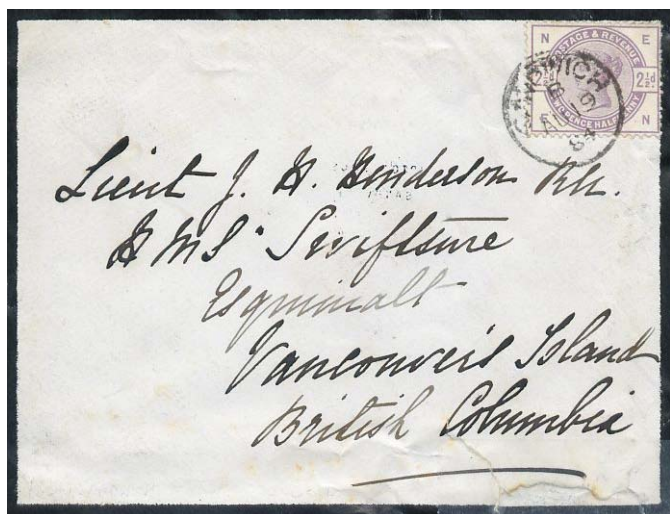 N E
POSTAGE & REVENUE
2½d 2½d
TWOPENCE HALFPENNY
E N
84
Lieut J. H. Henderson R.N.
H M S "Swiftsure
Esquimalt
Vancouvers Island
British Columbia